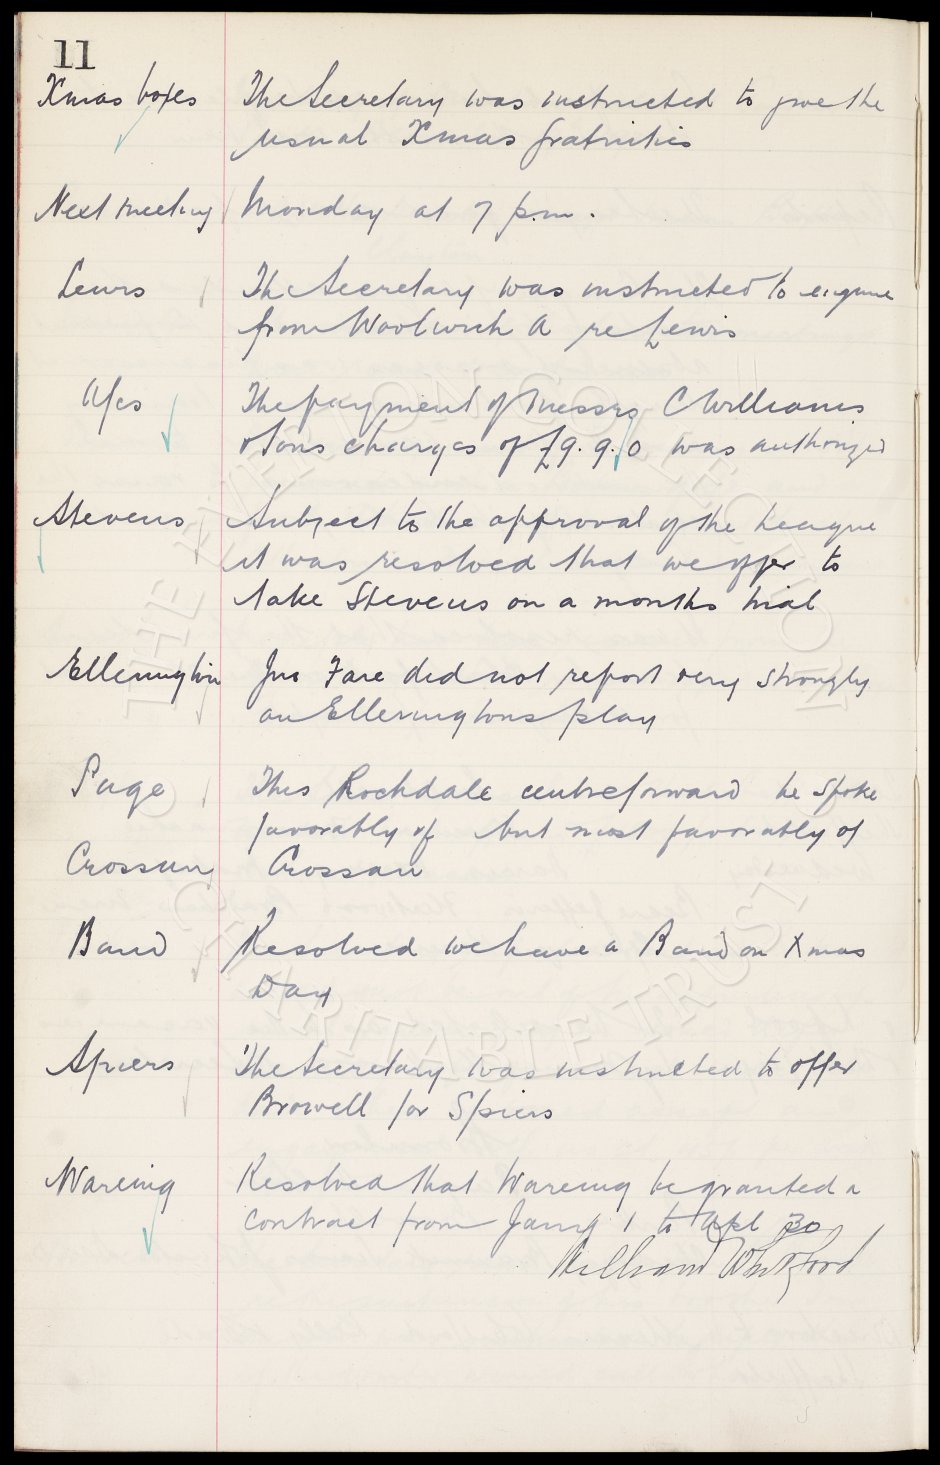 11
Xmas boxes The Secretary was instructed to give the
usual Xmas Gratuities
Next meeting Monday at 7 p.m.
Lewis The Secretary was instructed to enquire
from Woolwich A re Lewis
A/cs The payment of Messrs C Williams
& Sons charges of £9.9.0 was authorized
Stevens Subject to the approval of the League
it was resolved that we offer to
take Stevens on a months trial
Ellerington Jno Fare did not report very strongly
on Elleringtons play
Page This Rochdale centreforward he spoke
favorably of but most favorably of
Crossan Crossan
Band Resolved we have a Band on Xmas
Day
Spiers The Secretary was instructed to offer
Browell for Spiers
Wareing Resolved that Wareing be granted a
contract from Jany 1 to Apl 30
William Whitford
THE EVERTON COLLECTION
CHARITABLE TRUST